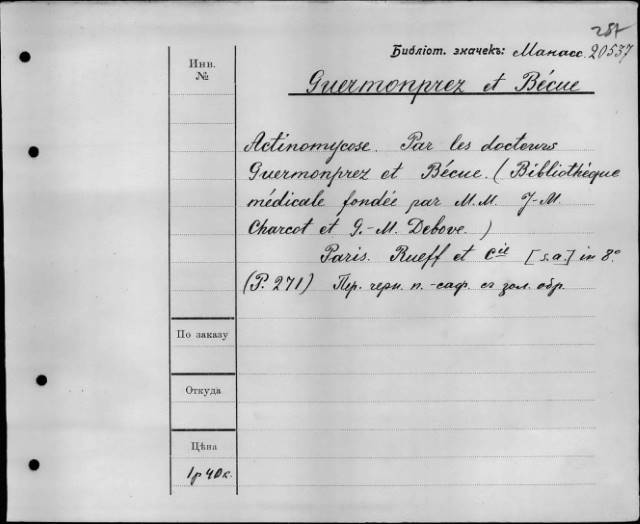 287
Библіот. значекъ: Манасс. 20537
Инв.
№
Guermonprez et Bécue
Actinomycose. Par les docteurs
Guermonprez et Bécue. (Bibliothèque
médicale fondée par M.M. J-M.
Charcot et G.-M. Debove.)
Paris. Rueff et Cie [s.a.] in 8°
(P. 271) Пер. черн. п.-саф. съ зол. обр.
По заказу
Откуда
Цѣна
1р 40к.